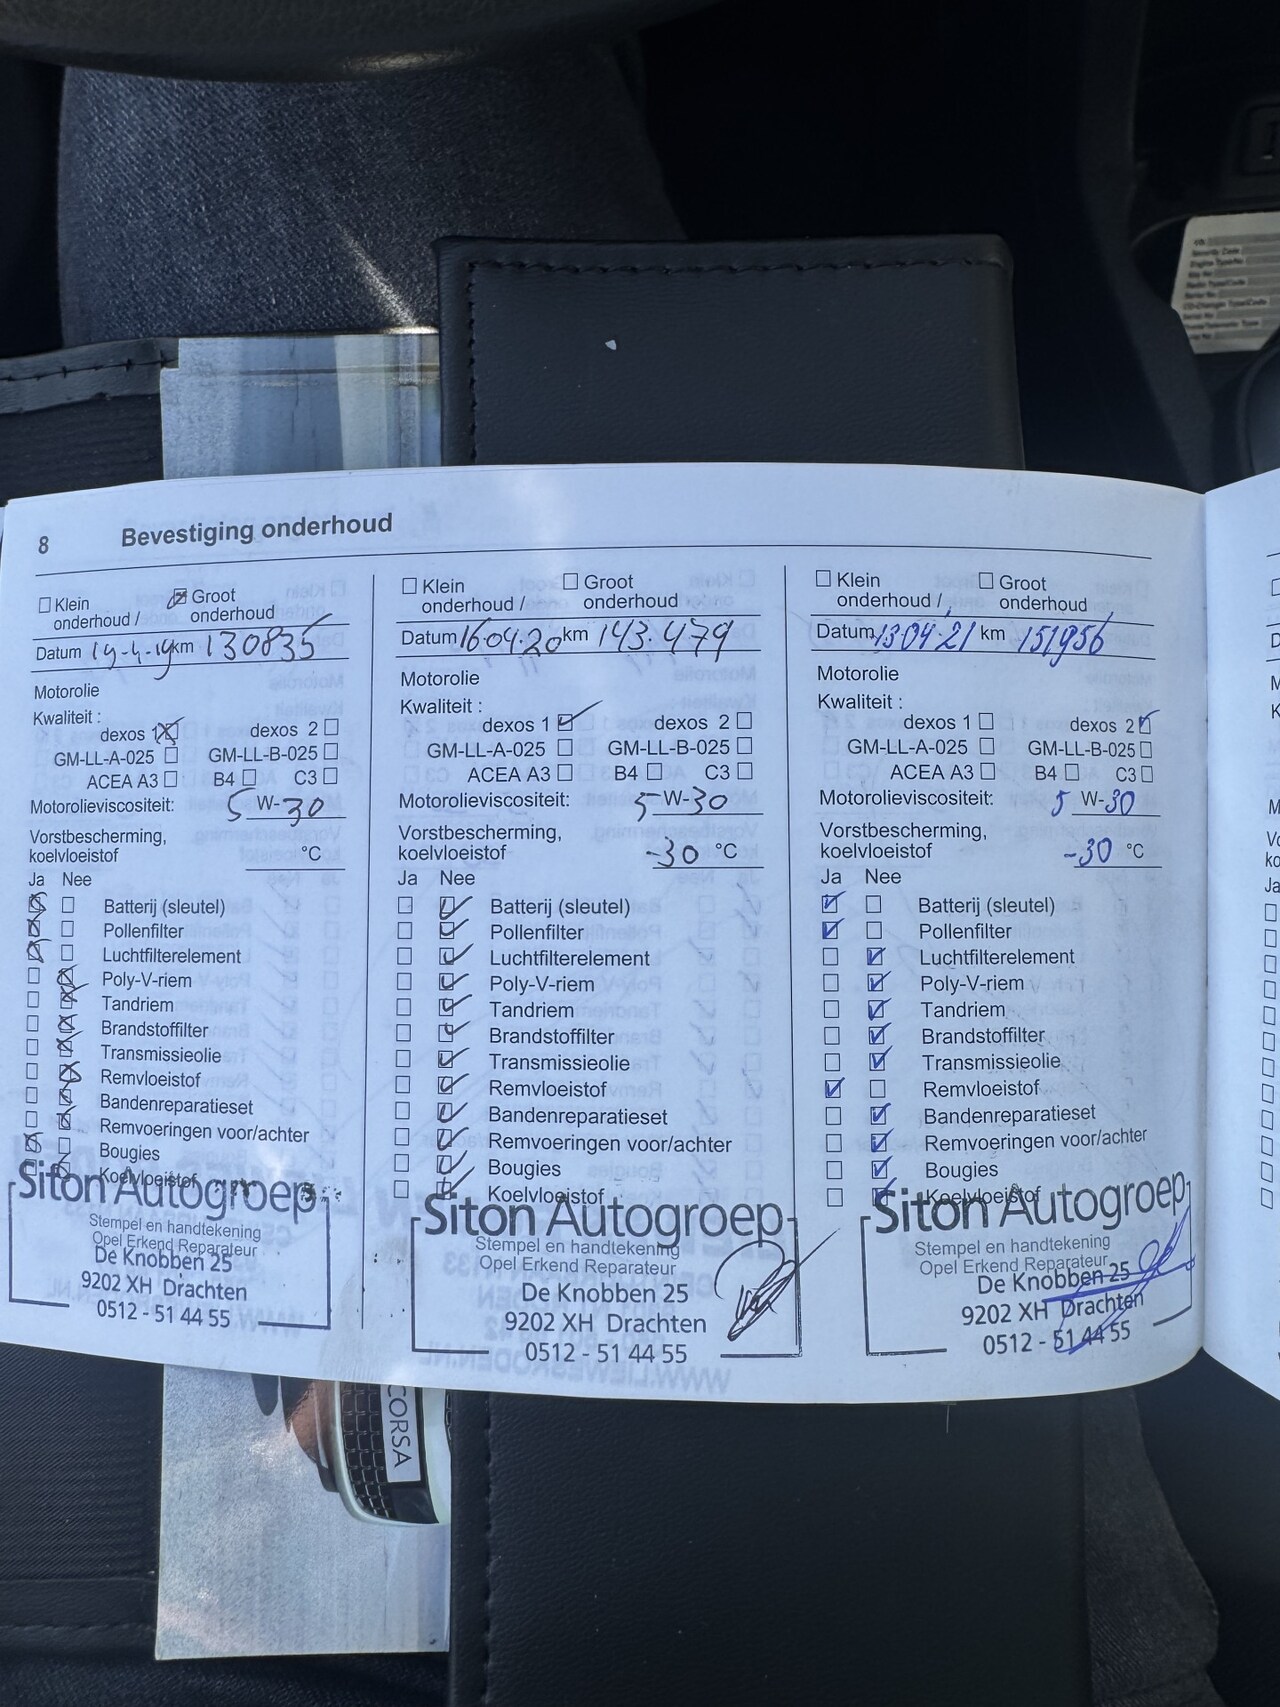 8 Bevestiging onderhoud
Klein onderhoud / Groot onderhoud
Datum 19-4-19 km 130835
Motorolie
Kwaliteit :
dexos 1 dexos 2
GM-LL-A-025 GM-LL-B-025
ACEA A3 B4 C3
Motorolieviscositeit: 5 W-30
Vorstbescherming,
koelvloeistof °C
Ja Nee
Batterij (sleutel)
Pollenfilter
Luchtfilterelement
Poly-V-riem
Tandriem
Brandstoffilter
Transmissieolie
Remvloeistof
Bandenreparatieset
Remvoeringen voor/achter
Bougies
Koelvloeistof
Siton Autogroep
Stempel en handtekening
Opel Erkend Reparateur
De Knobben 25
9202 XH Drachten
0512 - 51 44 55
Klein onderhoud / Groot onderhoud
Datum 16-04-20 km 143.479
Motorolie
Kwaliteit :
dexos 1 dexos 2
GM-LL-A-025 GM-LL-B-025
ACEA A3 B4 C3
Motorolieviscositeit: 5 W-30
Vorstbescherming,
koelvloeistof -30 °C
Ja Nee
Batterij (sleutel)
Pollenfilter
Luchtfilterelement
Poly-V-riem
Tandriem
Brandstoffilter
Transmissieolie
Remvloeistof
Bandenreparatieset
Remvoeringen voor/achter
Bougies
Koelvloeistof
Siton Autogroep
Stempel en handtekening
Opel Erkend Reparateur
De Knobben 25
9202 XH Drachten
0512 - 51 44 55
Klein onderhoud / Groot onderhoud
Datum 13-04-21 km 151956
Motorolie
Kwaliteit :
dexos 1 dexos 2
GM-LL-A-025 GM-LL-B-025
ACEA A3 B4 C3
Motorolieviscositeit: 5 W-30
Vorstbescherming,
koelvloeistof -30 °C
Ja Nee
Batterij (sleutel)
Pollenfilter
Luchtfilterelement
Poly-V-riem
Tandriem
Brandstoffilter
Transmissieolie
Remvloeistof
Bandenreparatieset
Remvoeringen voor/achter
Bougies
Koelvloeistof
Siton Autogroep
Stempel en handtekening
Opel Erkend Reparateur
De Knobben 25
9202 XH Drachten
0512 - 51 44 55
CORSA
Security Code